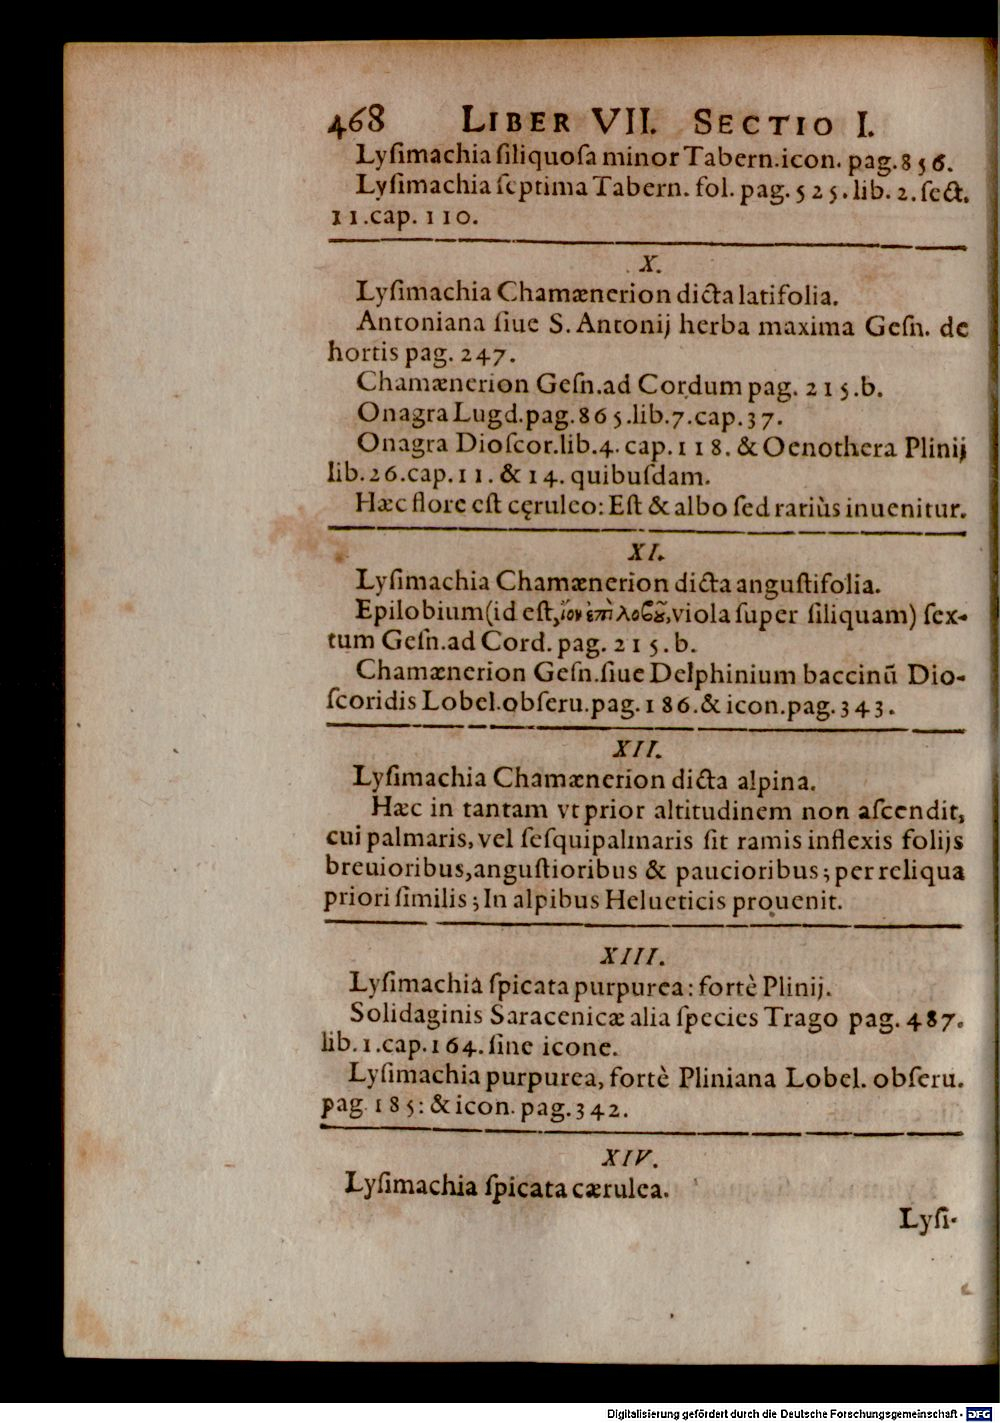 468 LIBER VII. SECTIO I.
Lyſimachia ſiliquoſa minor Tabern.icon. pag.856.
Lyſimachia ſeptima Tabern. fol. pag. 525. lib. 2. ſect.
11.cap. 110.
X.
Lyſimachia Chamænerion dicta latifolia.
Antoniana ſiue S. Antonij herba maxima Geſn. de
hortis pag. 247.
Chamænerion Geſn.ad Cordum pag. 215.b.
Onagra Lugd.pag.865.lib.7.cap.37.
Onagra Dioſcor.lib.4. cap.118. & Oenothera Plinij
lib.26.cap.11. & 14. quibuſdam.
Hæc flore eſt cęruleo: Eſt & albo ſed rariùs inuenitur.
XI.
Lyſimachia Chamænerion dicta anguſtifolia.
Epilobium(id eſt, ἴον ἐπὶ λοβοῦ, viola ſuper ſiliquam) ſex-
tum Geſn.ad Cord. pag. 215.b.
Chamænerion Geſn.ſiue Delphinium baccinū Dio-
ſcoridis Lobel.obſeru.pag.186.& icon.pag.343.
XII.
Lyſimachia Chamænerion dicta alpina.
Hæc in tantam vt prior altitudinem non aſcendit,
cui palmaris, vel ſeſquipalmaris ſit ramis inflexis folijs
breuioribus, anguſtioribus & paucioribus; per reliqua
priori ſimilis; In alpibus Helueticis prouenit.
XIII.
Lyſimachia ſpicata purpurea: fortè Plinij.
Solidaginis Saracenicæ alia ſpecies Trago pag. 487.
lib. 1.cap.164. ſine icone.
Lyſimachia purpurea, fortè Pliniana Lobel. obſeru.
pag. 185: & icon. pag.342.
XIV.
Lyſimachia ſpicata cærulea.
Lyſi-
Digitalisierung gefördert durch die Deutsche Forschungsgemeinschaft - DFG